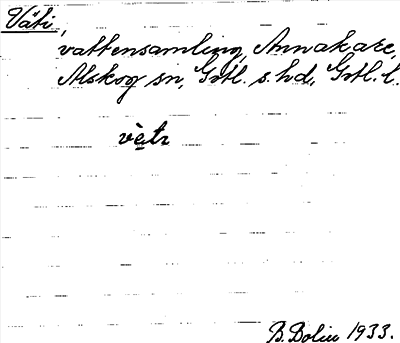 Väti,
vattensamling, Annakare,
Alskog sn, Gotl. s. hd, Gotl. l.
vètı
B. Bolin 1933.